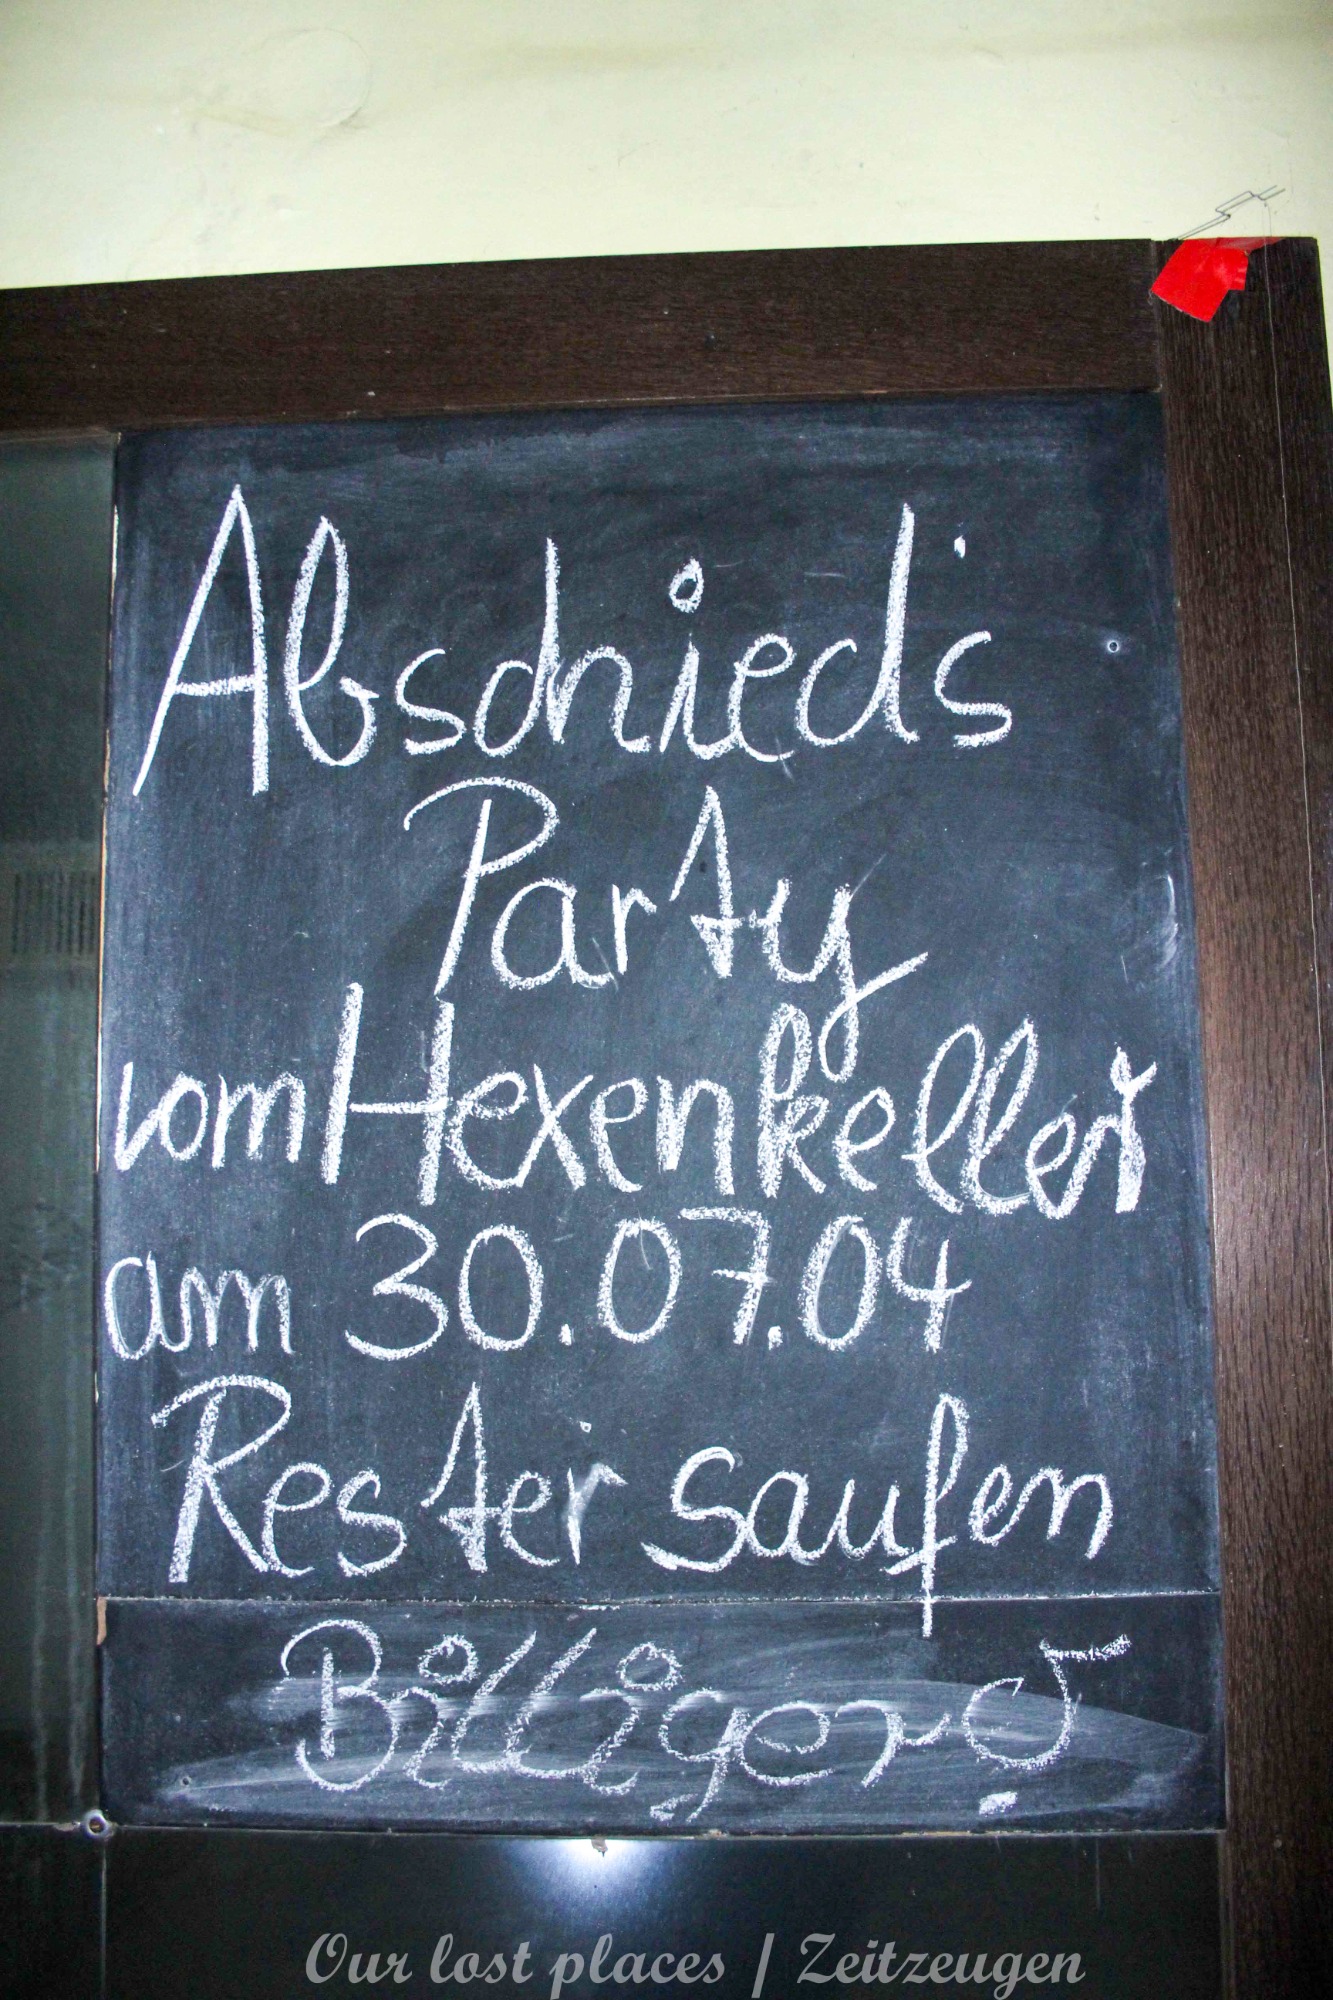 Abschied's
Party
vom Hexenkeller
am 30.07.04
Rester saufen
Billiger
Our lost places / Zeitzeugen